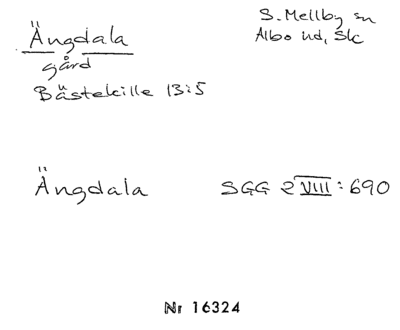 Ängdala
gård
Bästekille 13:5
S. Mellby sn
Albo hd, Sk
Ängdala SGG 2 VIII: 690
Nr 16324